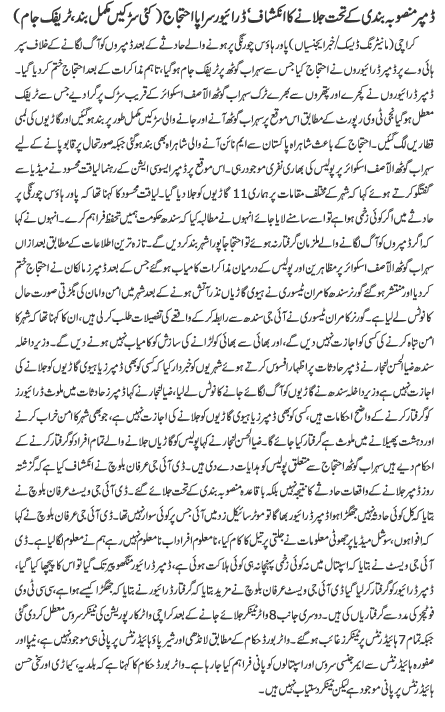 ڈمپر منصوبہ بندی کے تحت جلانے کا انکشاف‘ ڈرائیور سراپا احتجاج (کئی سڑکیں مکمل بند‘ ٹریفک جام)
کراچی (مانیٹرنگ ڈیسک/خبر ایجنسیاں) پاور ہاؤس چورنگی پر ہونے والے حادثے کے بعد ڈمپروں کو آگ لگانے کے خلاف سپر
ہائی وے پر ڈمپر ڈرائیوروں نے احتجاج کیا جس سے سہراب گوٹھ پر ٹریفک جام ہوگیا، تاہم مذاکرات کے بعد احتجاج ختم کردیا گیا۔
ڈرائیوروں نے کچرے اور پتھروں سے بھرے ٹرک سہراب گوٹھ الآصف اسکوائر کے قریب سڑک پر گرا دیے جس سے ٹریفک
معطل ہوگیا نجی ٹی وی رپورٹ کے مطابق اس موقع پر سہراب گوٹھ آنے اور جانے والی سڑکیں مکمل طور پر بند ہوگئیں اور گاڑیوں کی لمبی
قطاریں لگ گئیں۔ احتجاج کے باعث شاہراہ پاکستان سے ایم نائن آنے والی شاہراہ بھی بند ہوگیا جبکہ صورتحال پر قابو پانے کے لیے
سہراب گوٹھ الآصف اسکوائر پر پولیس کی بھاری نفری موجود رہی۔ اس موقع پر ڈمپر ایسوسی ایشن کے رہنما لیاقت محسود نے میڈیا سے
گفتگو کرتے ہوئے کہا کہ شہر کے مختلف مقامات پر ہماری 11 گاڑیوں کو جلا دیا گیا۔ لیاقت محسود کا کہنا تھا کہ پاور ہاؤس چورنگی پر
حادثے میں اگر کوئی زخمی ہوا ہے تو اسے سامنے لایا جائے انہوں نے مطالبہ کیا کہ سندھ حکومت ہمیں تحفظ فراہم کرے۔ انہوں نے کہا
کہ اگر ڈمپروں کو آگ لگانے والے ملزمان گرفتار نہ ہوئے تو احتجاجاً پورا شہر بند کردیں گے۔ تازہ ترین اطلاعات کے مطابق بعد ازاں
سہراب گوٹھ الآصف اسکوائر پر مظاہرین اور پولیس کے درمیان مذاکرات کامیاب ہوگئے جس کے بعد ڈمپر مالکان نے احتجاج ختم
کردیا اور منتشر ہوگئے گورنر سندھ کامران ٹیسوری نے ہیوی گاڑیاں نذر آتش ہونے کے بعد شہر میں امن و امان کی بگڑتی صورت حال
کا نوٹس لے لیا ہے۔ گورنر کامران ٹیسوری نے آئی جی سندھ سے رابطہ کر کے واقعے کی تفصیلات طلب کرلی ہیں، ان کا کہنا تھا کہ شہر کا
امن تباہ کرنے کی کسی کو اجازت نہیں دی جائے گی، اور بھائی سے بھائی کو لڑانے کی سازش کو کامیاب نہیں ہونے دیں گے۔ وزیر داخلہ
سندھ ضیا الحسن لنجار نے ڈمپر حادثات پر اظہار افسوس کرتے ہوئے شہریوں کو خبردار کیا کہ کسی کو بھی ڈمپرز یا ہیوی گاڑیوں کو جلانے کی
اجازت نہیں ہے وزیر داخلہ سندھ نے گاڑیوں کو آگ لگائے جانے کا نوٹس لے لیا، ضیا لنجار نے کہا ڈمپر حادثات میں ملوث ڈرائیورز
کو گرفتار کرنے کے واضح احکامات ہیں، کسی کو بھی ڈمپرز یا ہیوی گاڑیوں کو جلانے کی اجازت نہیں ہے، جو بھی شہر کا امن خراب کرنے
اور دہشت پھیلانے میں ملوث ہے گرفتار کیا جائے گا۔ ضیا الحسن لنجار نے کہا پولیس کو گاڑیاں جلانے والے تمام افراد کو گرفتار کرنے کے
احکام دیے ہیں سہراب گوٹھ احتجاج سے متعلق پولیس کو ہدایات دے دی ہیں۔ ڈی آئی جی عرفان بلوچ نے انکشاف کیا ہے کہ گزشتہ
روز ڈمپر جلانے کے واقعات حادثے کا نتیجہ نہیں بلکہ باقاعدہ منصوبہ بندی کے تحت جلائے گئے۔ ڈی آئی جی ویسٹ عرفان بلوچ نے
بتایا کہ کل کوئی حادثہ نہیں، جھگڑا ہوا ڈمپر ڈرائیور بھاگا تو موٹر سائیکل زد میں آئی جس پر کوئی سوار نہیں تھا۔ ڈی آئی جی عرفان بلوچ نے کہا
کہ افواہوں، سوشل میڈیا پر جھوٹی معلومات نے جلتی پر تیل کا کام کیا، نامعلوم افراد اب نامعلوم نہیں رہے ہم نے معلوم لگا لیا ہے۔ ڈی
آئی جی ویسٹ نے بتایا کہ اسپتال میں نہ کوئی زخمی پہنچا نہ ہی کوئی ہلاکت ہوئی ہے، ڈمپر ڈرائیور منگھوپیر تک گیا تو اس کا پیچھا کیا گیا،
ڈرائیور کو گرفتار کرلیا گیا ڈی آئی جی ویسٹ عرفان بلوچ نے مزید بتایا کہ گرفتار ڈرائیور نے بتایا کہ جھگڑا کیسے ہوا ہے، سی سی ٹی وی
فوٹیجز کی مدد سے گرفتاریاں کی ہیں۔ دوسری جانب 8 واٹر ٹینکر جلائے جانے کے بعد کراچی واٹر کارپوریشن کی ٹینکر سروس معطل کردی گئی
جبکہ تمام 7 ہائیڈرنٹس پر ٹینکرز غائب ہوگئے۔ واٹر بورڈ حکام کے مطابق لانڈھی اور شیرپاؤ ہائیڈرنٹس پر پانی ہی موجود نہیں ہے، نیپا اور
صفورہ ہائیڈرنٹس سے ایمرجنسی سروس اور اسپتالوں کو پانی فراہم کیا جارہا ہے۔ واٹر بورڈ حکام کا کہنا ہے کہ بلدیہ، کیماڑی اور سخی حسن
ہائیڈرنٹس پر پانی موجود ہے لیکن ٹینکر دستیاب نہیں ہیں۔